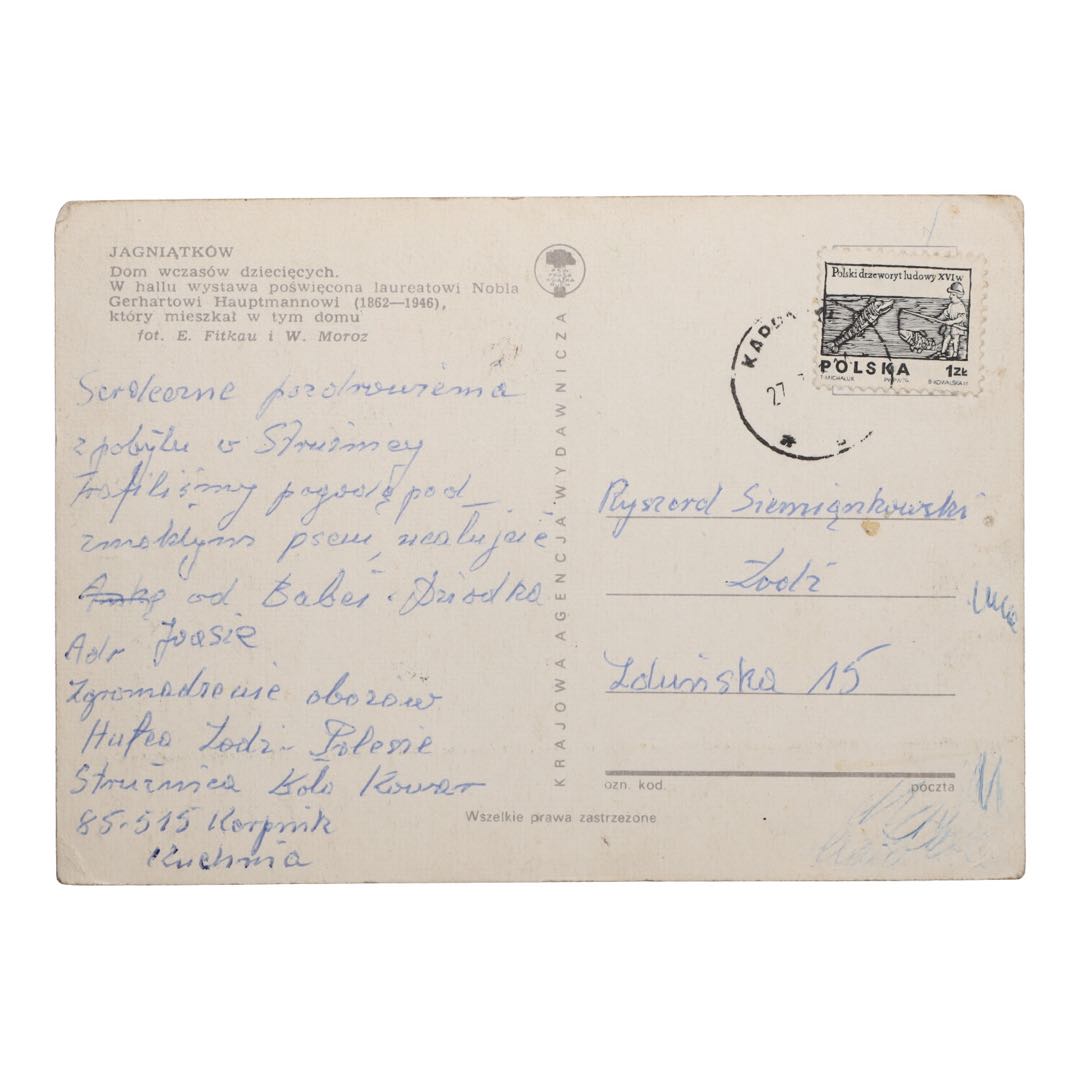 JAGNIĄTKÓW
Dom wczasów dziecięcych.
W hallu wystawa poświęcona laureatowi Nobla
Gerhartowi Hauptmannowi (1862—1946),
który mieszkał w tym domu
fot. E. Fitkau i W. Moroz
Serdeczne pozdrowienia
z pobytu w Strużnicy
Trafiliśmy pogodę pod
zmokłym psem, ucałujcie
od Babci i Dziodka
Joasię
Adr
Zgromadzenie obozów
Hufca Łodź-Polesie
Strużnica Koło Kowar
85-515 Karpnik
Kuchnia
KRAJOWA AGENCJA WYDAWNICZA
Polski drzeworyt ludowy XVI w
POLSKA 1ZŁ
T. MICHALUK PWPW 76 B. KOWALSKA
27
Ryszard Siemiąnkowski
Łodź
Zduńska 15
ozn. kod. poczta
Wszelkie prawa zastrzeżone